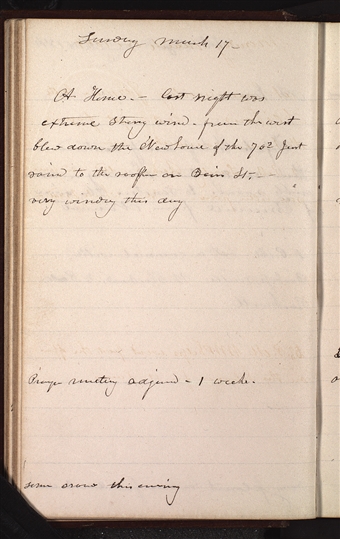 Sunday March 17 -
At Home. - Last night was
extreme strong wind from the west
blew down the New house of the 70 feet
raised to the on Ben St. -
very windy this day
Prayer meeting adjurned - 1 week.
some snow this evning